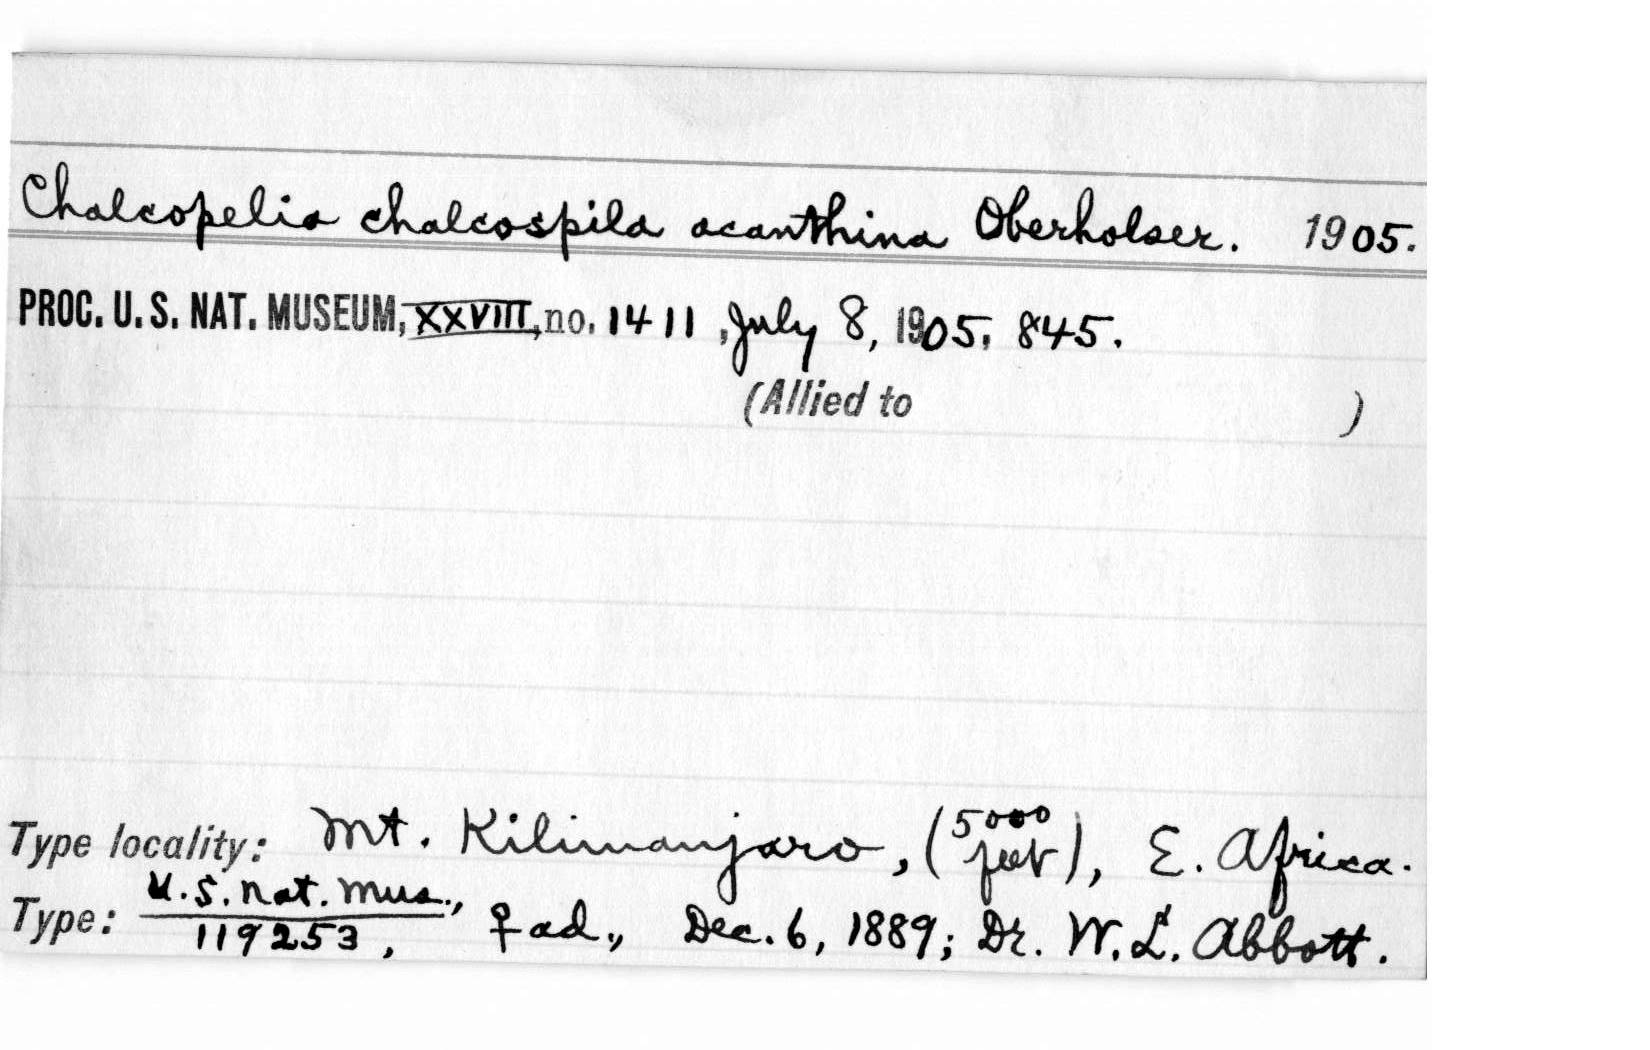 Chalcopelia chalcospila acanthina Oberholser. 1905.
PROC. U. S. NAT. MUSEUM, XXVIII, no. 1411, July 8, 1905, 845.
(Allied to )
Type locality: Mt. Kilimanjaro, (5000 feet), E. Africa.
Type: U.S. Nat. Mus., 119253, ♀ ad., Dec. 6, 1889; Dr. W. L. Abbott.